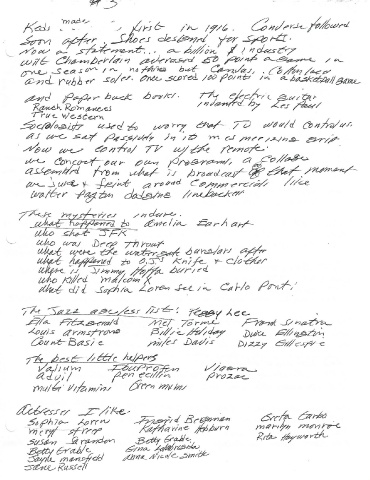 # 3
Keds made . . . first in 1916. Converse followed
soon after, Shoes designed for sports.
Now a statement.. a billion $ industry
Wilt Chamberlain averaged 50 points a game in
one season in nothing but Canvas, Cotton laces
and rubber soles. once scored 100 points in a basketball game
and Paper back books. The electric guitar
Ranch Romances invented by Les Paul
True Western
Sociologists used to worry that TV would control us
as we sat passively in its mesmerizing
Now we control TV w/the remote.
we concoct our own programs, a collage
assembled from what is broadcast @ that moment
we juke & feint around commercials like
walter payton dodging linebackers
These mysteries endure.
what happened to amelia Earhart
who shot JFK
who was Deep Throat
what were the watergate burglars after
what happened to O.J.'s Knife & clothes
where is Jimmy Hoffa buried
who killed malcolm X
what did Sophia Loren see in Carlo Ponti?
The Jazz ageless list: Peggy Lee
Ella Fitzgerald Mel Torme Frank Sinatra
Louis armstrong Billie Holiday Duke Ellington
Count Basie miles Davis Dizzy Gillespie
The best little helpers
Valium Ibuprofen Viagra
advil penicillin prozac
multi Vitamins
Actresses I like.
Sophia Loren Ingrid Bergman Greta Garbo
meryl streep Katharine Hepburn marilyn monroe
susan sarandon Betty Grable Rita Hayworth
Betty Grable Gina Lollobrigida
Jayne mansfield Anna Nicole Smith
Jane Russell